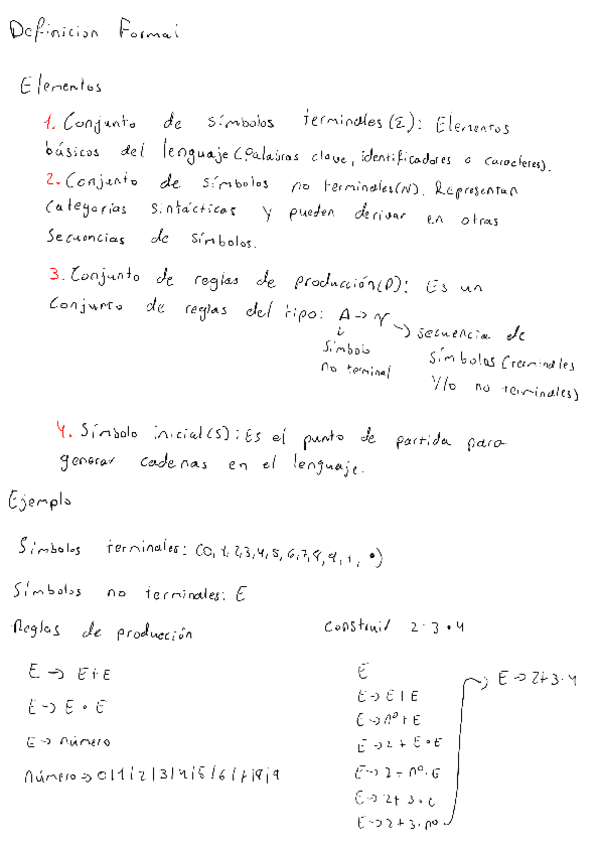 Definición Formal
Elementos
1. Conjunto de símbolos terminales (Σ): Elementos
básicos del lenguaje (Palabras clave, identificadores o caracteres).
2. Conjunto de símbolos no terminales (N). Representan
categorías sintácticas y pueden derivar en otras
secuencias de símbolos.
3. Conjunto de reglas de producción (P): Es un
conjunto de reglas del tipo: A → γ → secuencia de
símbolo símbolos (terminales
no terminal y/o no terminales)
4. Símbolo inicial (S): Es el punto de partida para
generar cadenas en el lenguaje.
Ejemplo
Símbolos terminales: (0, 1, 2, 3, 4, 5, 6, 7, 8, 9, +, •)
Símbolos no terminales: E
Reglas de producción
E → E+E
E → E • E
E → número
número → 0|1|2|3|4|5|6|7|8|9
construir 2 · 3 • 4
E
E → E+E
E → nº + E
E → 2 + E • E
E → 2 + nº · E
E → 2 + 3 • E
E → 2 + 3 · nº
E → 2+3·4